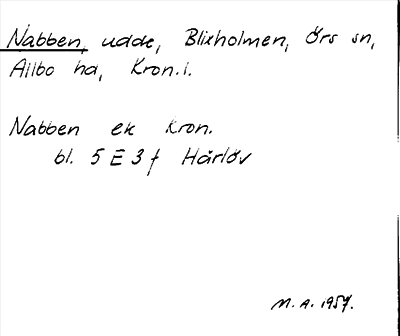 Nabben, udde, Blixholmen, Örs sn,
Allbo hd, Kron.l.
Nabben ek Kron.
bl. 5 E 3 f Härlöv
M. A. 1957.